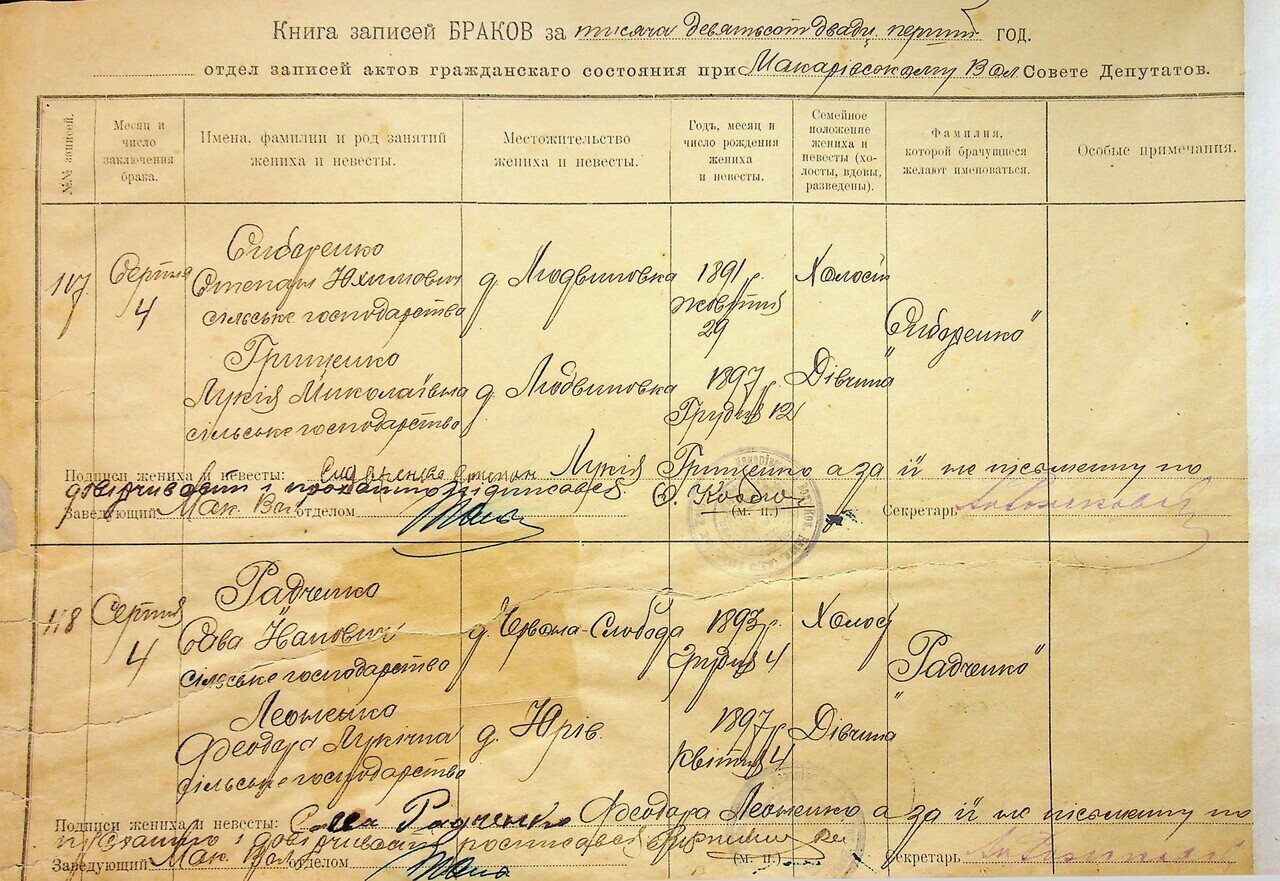 Книга записей БРАКОВ за тисяча девятьсот двадц. перший год.
отдел записей актов гражданскаго состояния при Макарівському Вол Совете Депутатов.
№№ записей.
Месяц и число заключения брака.
Имена, фамилии и род занятий жениха и невесты.
Местожительство жениха и невесты.
Годъ, месяц и число рождения жениха и невесты.
Семейное положение жениха и невесты (холосты, вдовы, разведены).
Фамилия, которой брачущиеся желают именоваться.
Особые примечания.
117
Серпня 4
Сидоренко
Степан Юхимович
сільське господарство
д. Людвиновка
1891 р.
жовтня
29
Холостий
"Сидоренко"
Грищенко
Лукія Миколаївна
сільське господарство
д. Людвиновка
1897 р.
Грудня 12
Дівчина
Подписи жениха и невесты: Степан Лукія Грищенко а за її не письменну по
підписався
Заведующий Мак. Вол отделом (м. п.) Секретарь
118
Серпня 4
Радченко
Сава
сільське господарство
д. Червона-Слобода
1893 р.
Грудня 4
Холост
"Радченко"
Леоненко
Феодора Лукічна
сільське господарство
д. Юрів.
1897 р.
Квітня 4
Дівчина
Подписи жениха и невесты: Сава Радченко Феодора Леоненко а за її не письменну по
росписався
Заведующий Мак. Вол отделом (м. п.) Секретарь